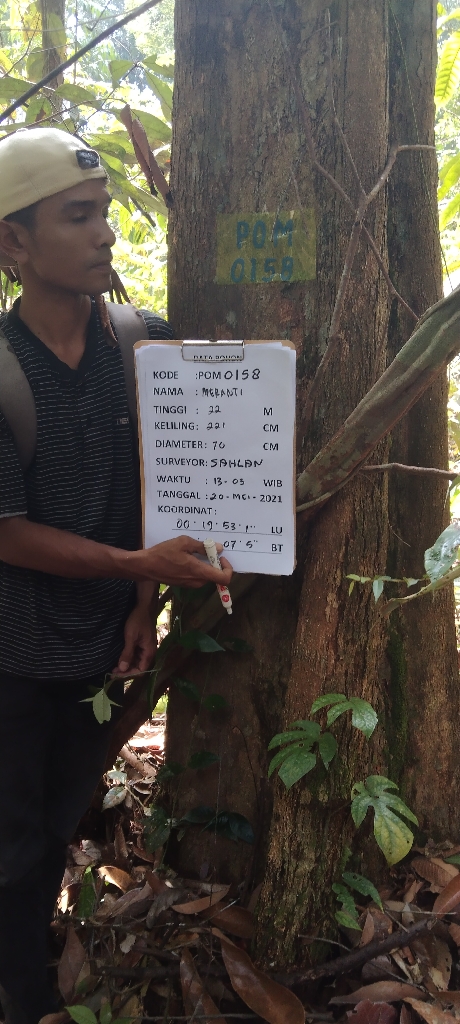 POM
0158
DATA POHON
KODE : POM 0158
NAMA : MERANTI
TINGGI : 22 M
KELILING : 221 CM
DIAMETER : 70 CM
SURVEYOR : SAHLAN
WAKTU : 13-03 WIB
TANGGAL : 20-MEI-2021
KOORDINAT :
00°19'53.1" LU
07'5" BT